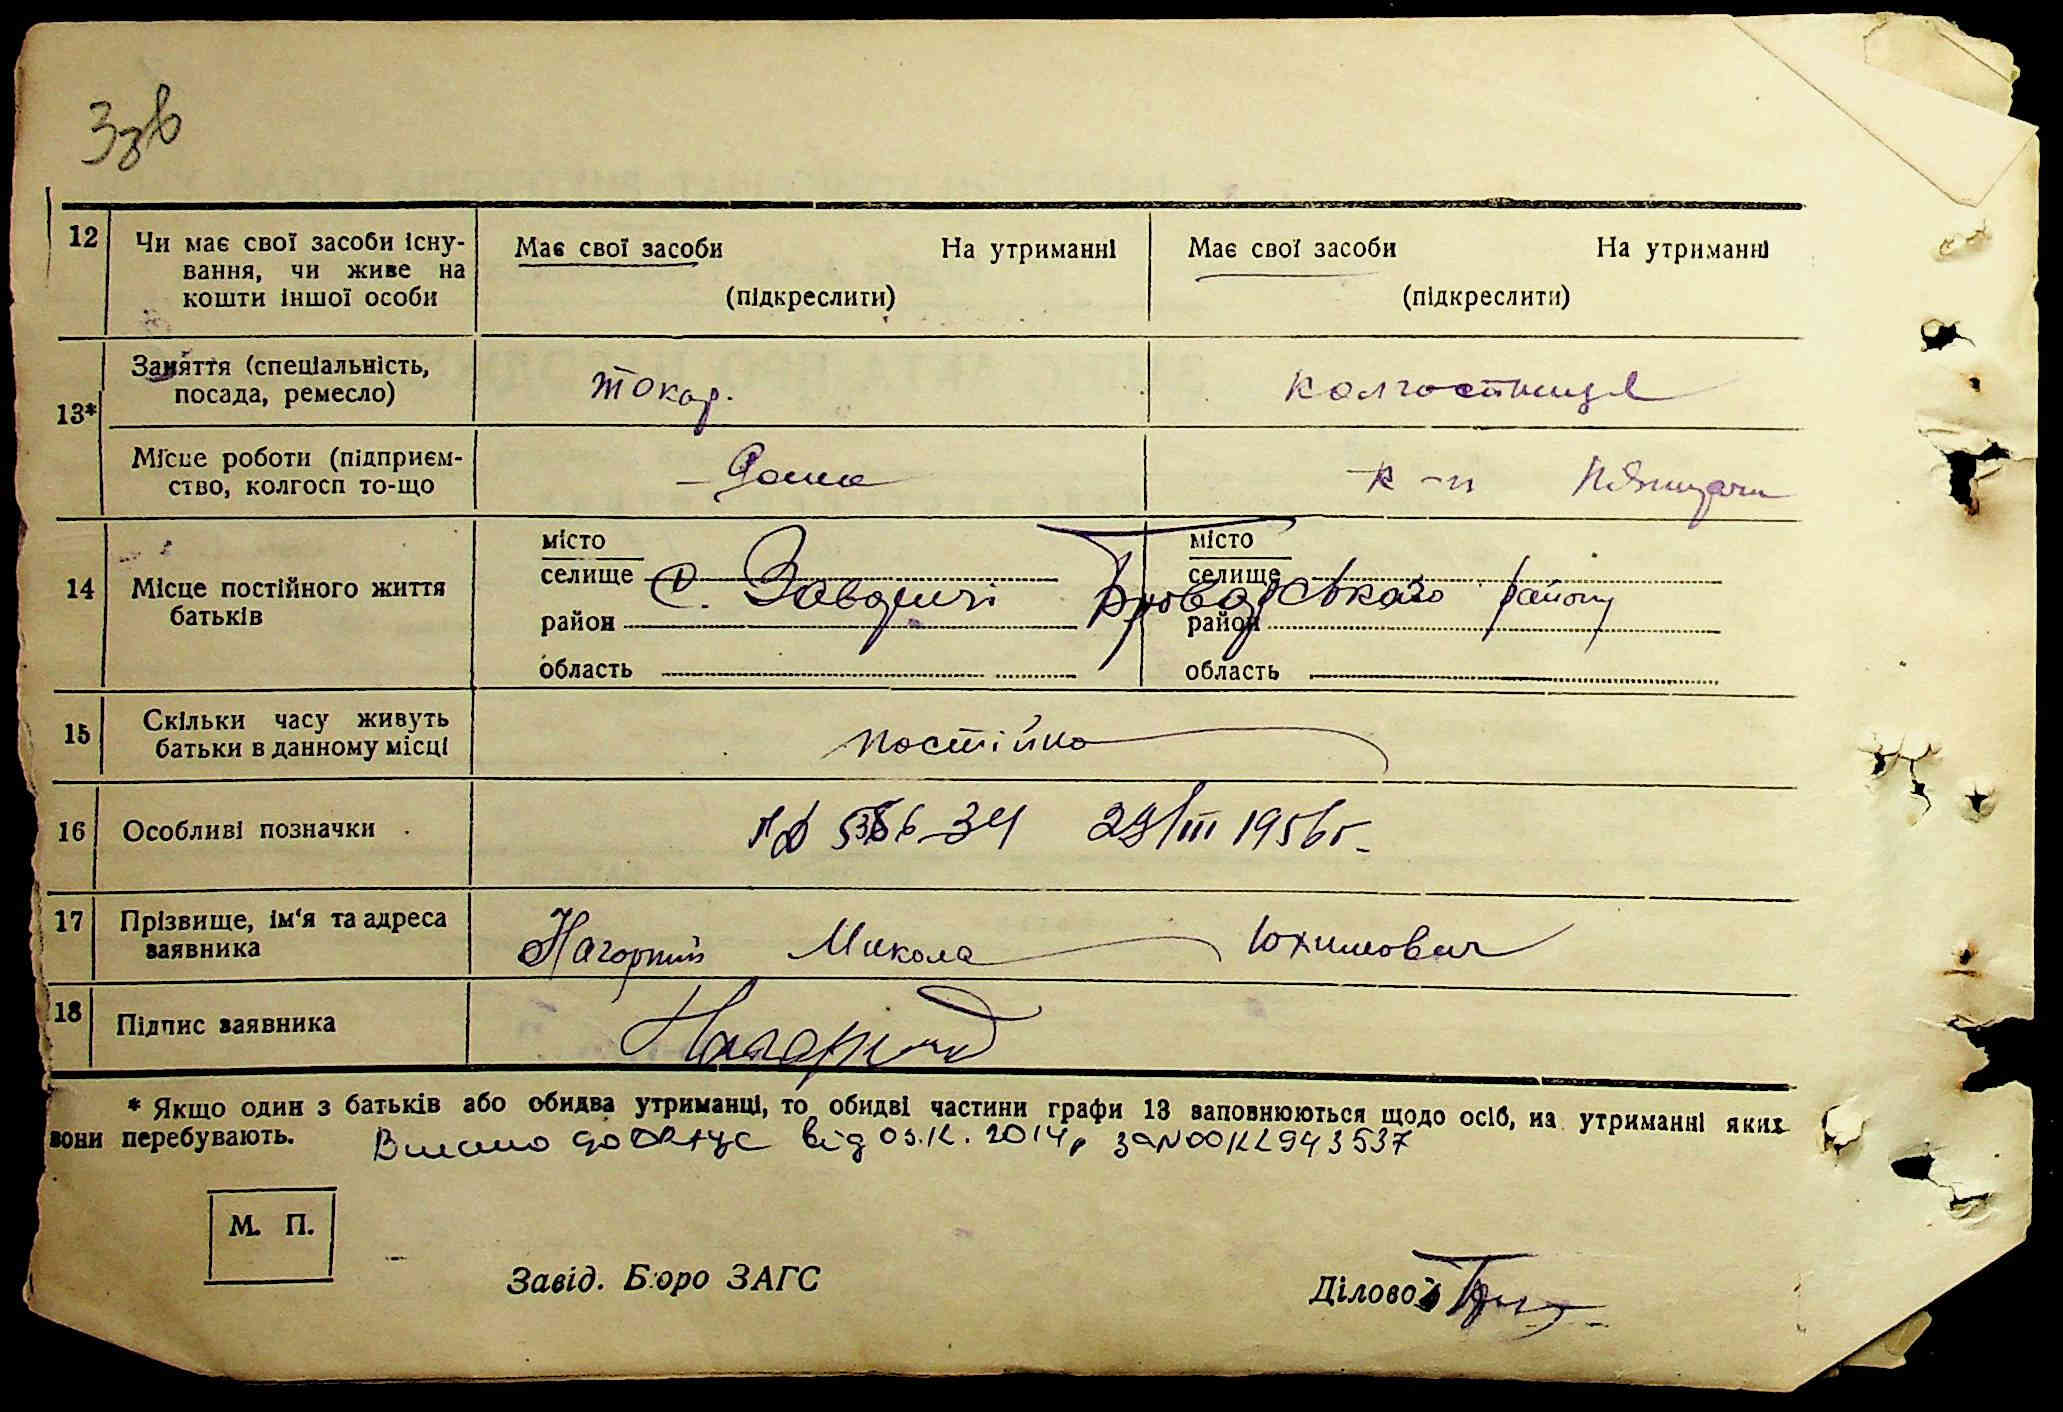 12 Чи має свої засоби існу-
вання, чи живе на
кошти іншої особи
Має свої засоби На утриманні
(підкреслити)
Має свої засоби На утриманні
(підкреслити)
13* Заняття (спеціальність,
посада, ремесло)
токар.
колгоспниця
Місце роботи (підприєм-
ство, колгосп то-що
к-п
14 Місце постійного життя
батьків
місто
селище
район
область
місто
селище
район
область
с. Заворичі Броварського району
15 Скільки часу живуть
батьки в данному місці
постійно
16 Особливі позначки
III 1956г.
17 Прізвище, ім'я та адреса
заявника
Нагорний Микола Юхимович
18 Підпис заявника
* Якщо один з батьків або обидва утриманці, то обидві частини графи 13 заповнюються щодо осіб, на утриманні яких
вони перебувають.
від 03. 2014, 943537
М. П.
Завід. Бюро ЗАГС
Діловод